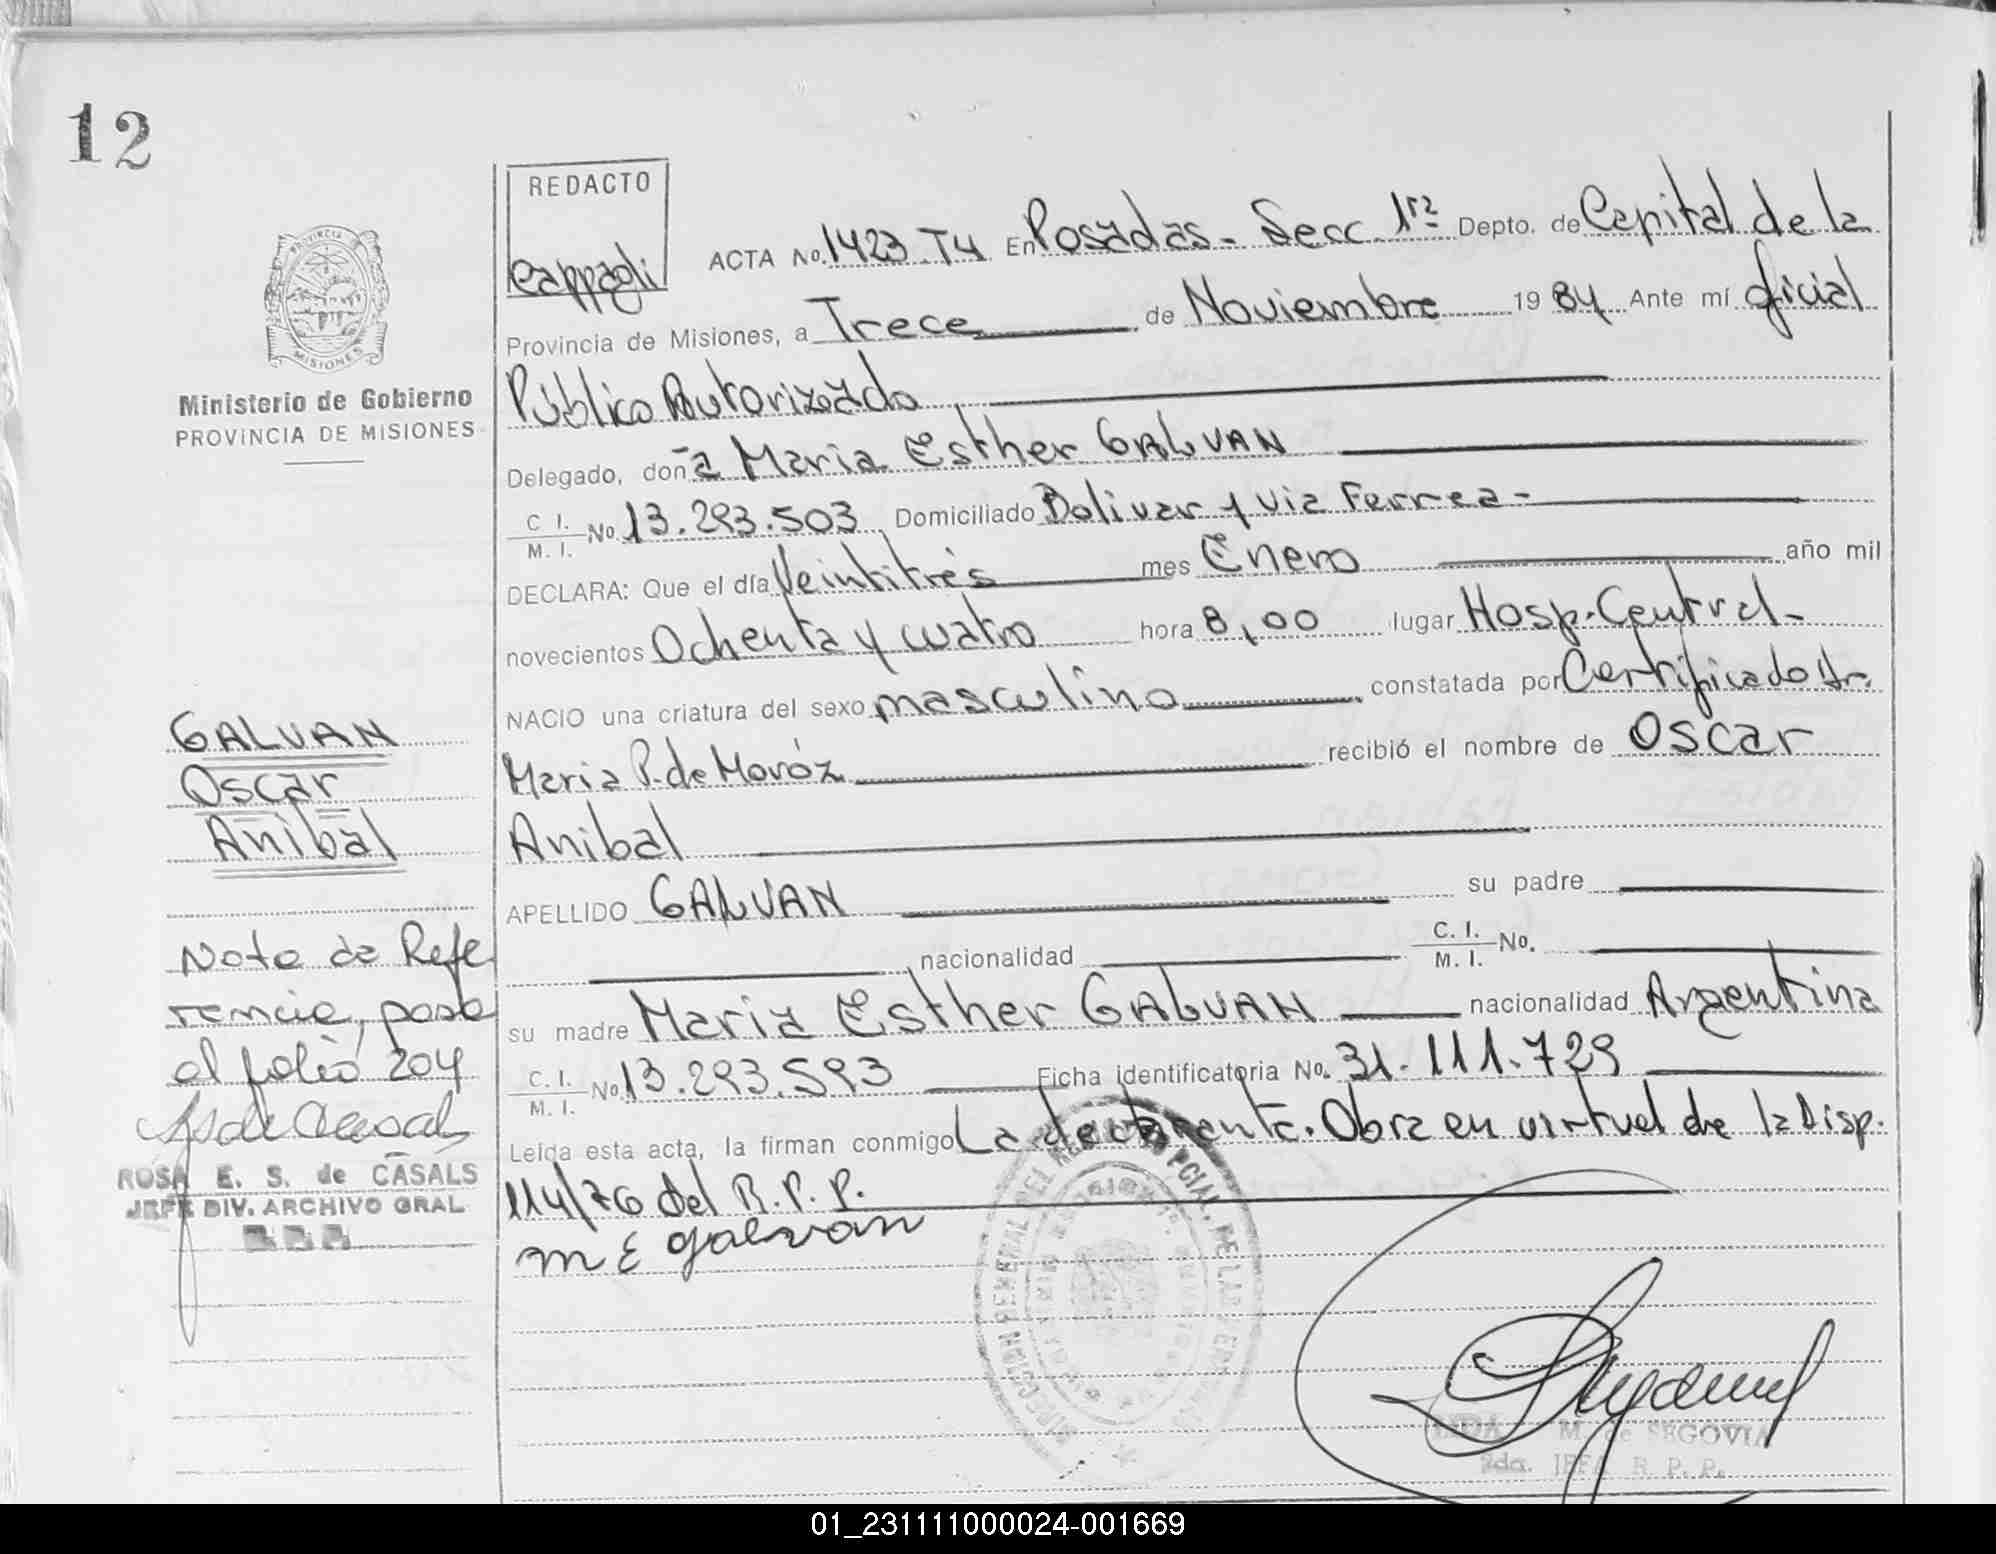 12
REDACTO
Cappagli
ACTA No. 1423 T4 En Posadas - Secc. 1ra Depto. de Capital de la
Provincia de Misiones, a Trece de Noviembre 1984 Ante mí oficial
Público Autorizado
Delegado, doña Maria Esther GALVAN
C. I. / M. I. No. 13.293.503 Domiciliado Bolivar y Via Ferrea -
DECLARA: Que el día Veintitrés mes Enero año mil
novecientos Ochenta y cuatro hora 8,00 lugar Hosp. Central -
NACIO una criatura del sexo masculino constatada por Certificado Dr.
Maria P. de Moróz recibió el nombre de Oscar
Anibal
APELLIDO GALVAN su padre
nacionalidad C. I. / M. I. No.
su madre Maria Esther GALVAN nacionalidad Argentina
C. I. / M. I. No. 13.293.593 Ficha identificatoria No. 31.111.729
Leída esta acta, la firman conmigo La declarante. Obra en virtud de la Disp.
114/76 del R. P. P.
M E Galvan
LIDA M. de SEGOVIA
2da. JEFA R. P. P.
PROVINCIA
MISIONES
Ministerio de Gobierno
PROVINCIA DE MISIONES
GALVAN
Oscar
Anibal
Nota de Refe
rencia, pasa
al folio 204
ROSA E. S. de CASALS
JEFE DIV. ARCHIVO GRAL
01_231111000024-001669